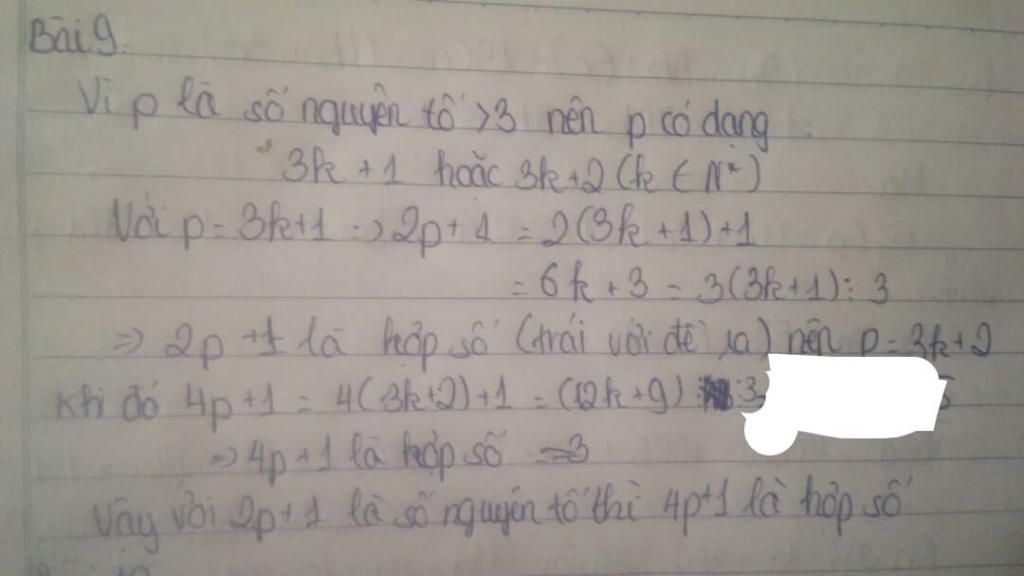 Bài 9.
Vì p là số nguyên tố >3 nên p có dạng
3k + 1 hoặc 3k+2 (k ∈ N*)
Với p = 3k+1 => 2p + 1 = 2(3k + 1) + 1
= 6k + 3 = 3(3k+1) ⋮ 3
=> 2p + 1 là hợp số (trái với đề ra) nên p = 3k+2
Khi đó 4p+1 = 4(3k+2)+1 = (12k+9) ⋮ 3
=> 4p+1 là hợp số =3
Vậy với 2p+1 là số nguyên tố thì 4p+1 là hợp số